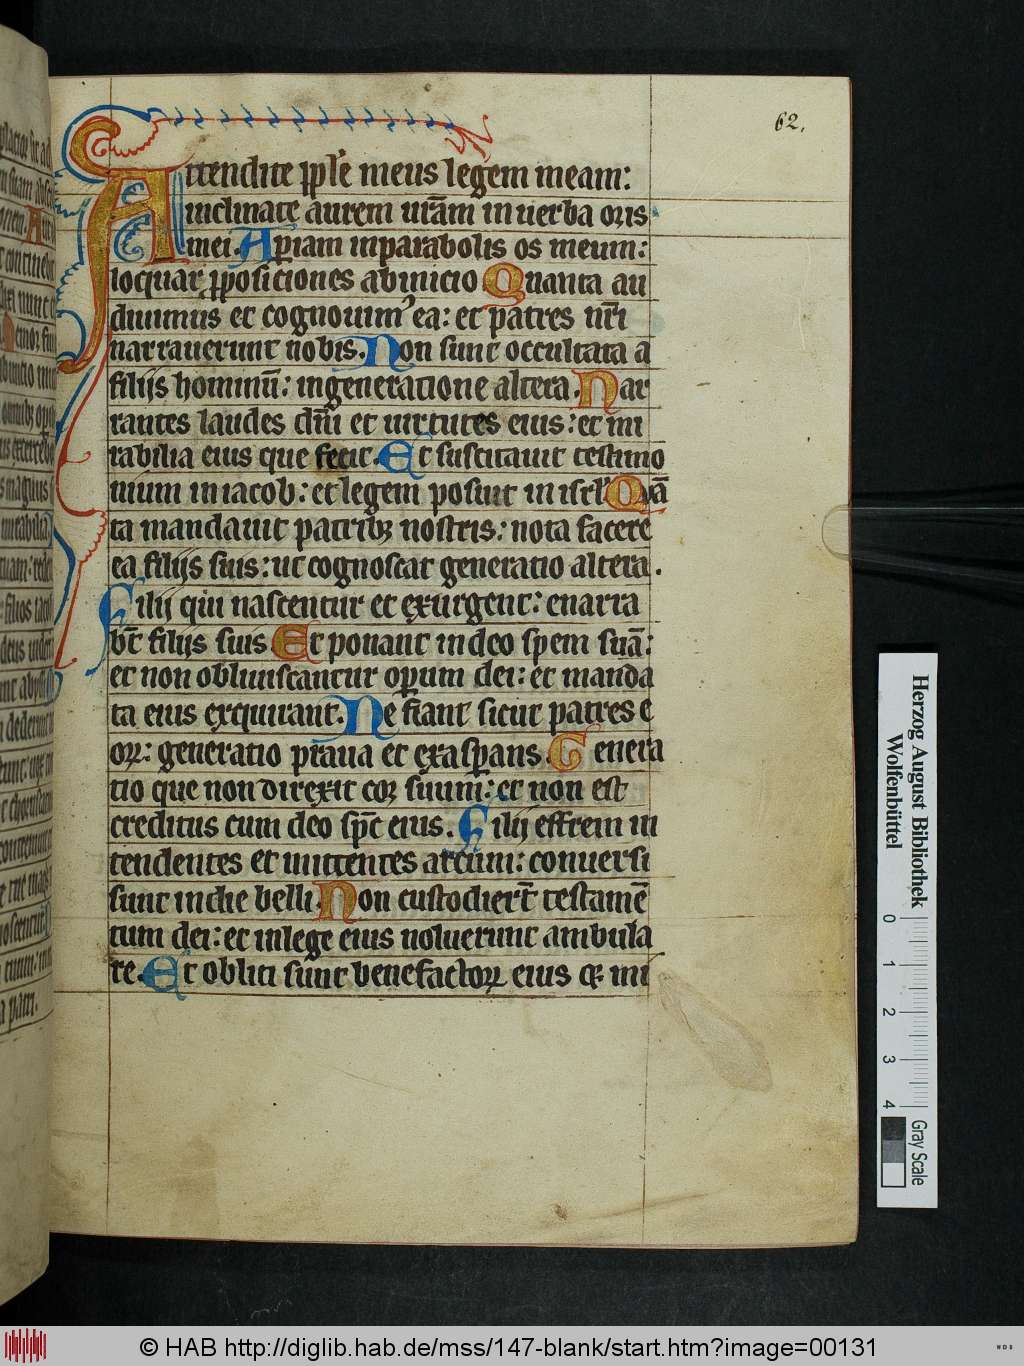 62.
Attendite pple meus legem meam:
inclinate aurem uram in uerba oris
mei. Aperiam in parabolis os meum:
loquar pposiciones ab inicio Quanta au
diuimus et cognouim ea: et patres nri
narrauerunt nobis. Non sunt occultata a
filijs hominū: in generatione altera. Nar
rantes laudes dni et uirtutes eius: et mi
rabilia eius que fecit. Et suscitauit testimo
nium in iacob: et legem posuit in isrl Quā
ta mandauit patribꝫ nostris: nota facere
ea filijs suis: ut cognoscat generatio altera.
Filij qui nascentur et exurgent: enarra
bt filijs suis Et ponant in deo spem suā:
et non obliuiscantur operum dei: et manda
ta eius exquirant. Ne fiant sicut patres e
oꝝ: generatio praua et exasperans. Genera
tio que non direxit cor suum: et non est
creditus cum deo spc eius. Filij effrem in
tendentes et mittentes arcum: conuersi
sunt in die belli. Non custodiert testamē
tum dei: et in lege eius noluerunt ambula
re. Et obliti sunt benefactoꝝ eius et mi
Herzog August Bibliothek
Wolfenbüttel
0 1 2 3 4
Gray Scale
© HAB http://diglib.hab.de/mss/147-blank/start.htm?image=00131